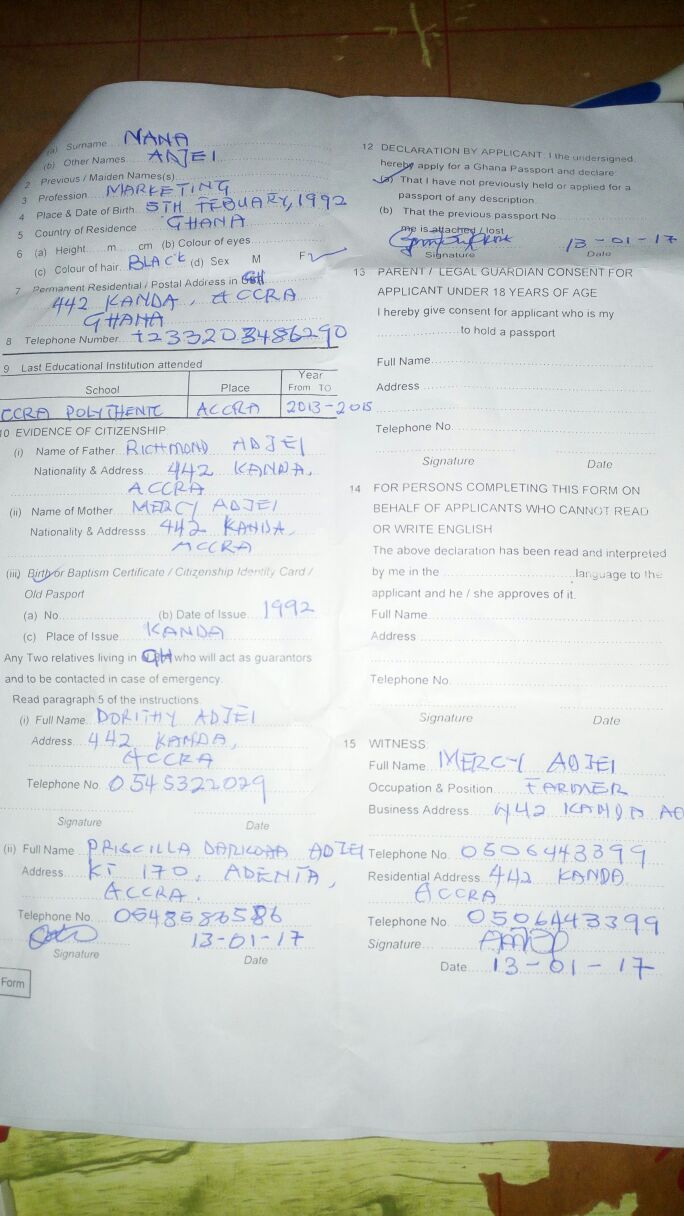 (a) Surname NANA
(b) Other Names ADJEI
2 Previous / Maiden Names(s)
3 Profession MARKETING
4 Place & Date of Birth 5TH FEBUARY, 1992
5 Country of Residence GHANA
6 (a) Height m cm (b) Colour of eyes
(c) Colour of hair BLACK (d) Sex M F ✓
7 Permanent Residential / Postal Address in GH
442 KANDA, ACCRA
GHANA
8 Telephone Number +233203486290
9 Last Educational Institution attended
School Place Year
From TO
CCRA POLYTHENIC ACCRA 2013-2015
10 EVIDENCE OF CITIZENSHIP
(i) Name of Father RICHMOND ADJEI
Nationality & Address 442 KANDA,
ACCRA
(ii) Name of Mother MERCY ADJEI
Nationality & Addresss 442 KANDA,
ACCRA
(iii) Birth or Baptism Certificate / Citizenship Identity Card /
Old Pasport
(a) No. (b) Date of Issue 1992
(c) Place of Issue KANDA
Any Two relatives living in GH who will act as guarantors
and to be contacted in case of emergency.
Read paragraph 5 of the instructions.
(i) Full Name DORITHY ADJEI
Address 442 KANDA,
ACCRA
Telephone No. 0545322029
Signature Date
(ii) Full Name PRISCILLA ADJEI
Address KT 170, ADENTA,
ACCRA.
Telephone No.
13-01-17
Signature Date
Form
12 DECLARATION BY APPLICANT: I the undersigned
hereby apply for a Ghana Passport and declare:
(a) That I have not previously held or applied for a
passport of any description.
(b) That the previous passport No.
me is attached / lost
13-01-17
Signature Date
13 PARENT / LEGAL GUARDIAN CONSENT FOR
APPLICANT UNDER 18 YEARS OF AGE
I hereby give consent for applicant who is my
to hold a passport
Full Name
Address
Telephone No.
Signature Date
14 FOR PERSONS COMPLETING THIS FORM ON
BEHALF OF APPLICANTS WHO CANNOT READ
OR WRITE ENGLISH
The above declaration has been read and interpreted
by me in the language to the
applicant and he / she approves of it.
Full Name
Address
Telephone No.
Signature Date
15 WITNESS:
Full Name MERCY ADJEI
Occupation & Position FARMER
Business Address 442 KANDA AC
Telephone No. 0506443399
Residential Address 442 KANDA
ACCRA
Telephone No. 0506443399
Signature
Date 13-01-17